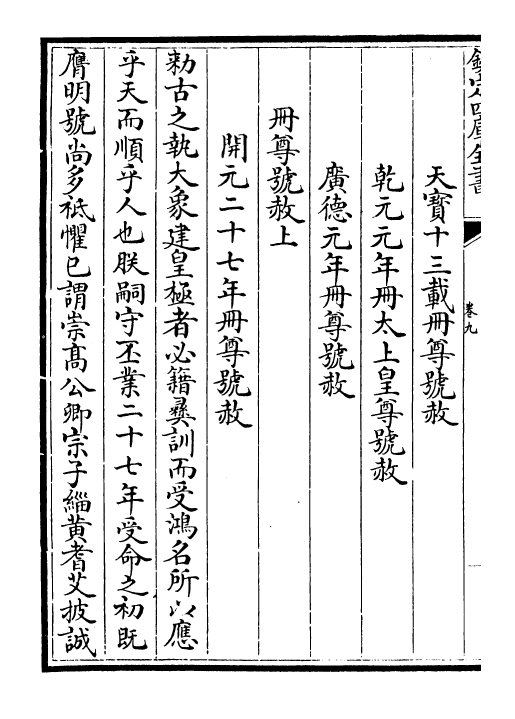 欽定四庫全書
卷九
天寶十三載冊尊號赦
乾元元年冊太上皇尊號赦
廣德元年冊尊號赦
冊尊號赦上
開元二十七年冊尊號赦
勑古之執大象建皇極者必籍彞訓而受鴻名所以應
乎天而順乎人也朕嗣守丕業二十七年受命之初既
膺明號尚多祗懼已謂崇髙公卿宗子緇黄耆艾披誠